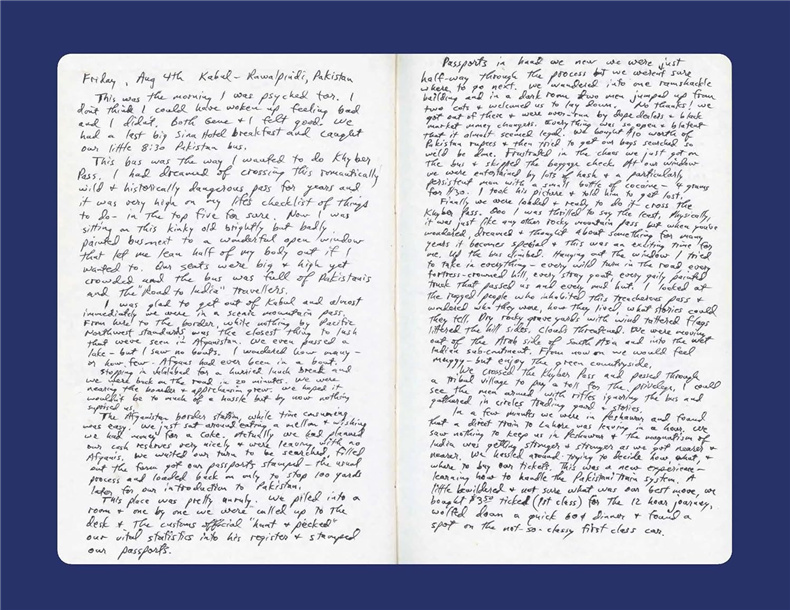 Friday, Aug 4th Kabul – Rawalpindi, Pakistan
This was the morning I was psyched for. I
don't think I could have woken up feeling bad
and I didn't. Both Gene & I felt good. We
had a last big Sina Hotel breakfast and caught
our little 8:30 Pakistan bus.
This bus was the way I wanted to do Khyber
Pass. I had dreamed of crossing this romantically
wild & historically dangerous pass for years and
it was very high on my life's checklist of things
to do – in the top five for sure. Now I was
sitting on this kinky old brightly but badly
painted bus next to a wonderful open window
that let me lean half of my body out if I
wanted to. Our seats were big & high yet
crowded and the bus was full of Pakistanis
and the "Road to India" travellers.
I was glad to get out of Kabul and almost
immediately we were in a scenic mountain pass.
From here to the border, while nothing by Pacific
Northwest standards was the closest thing to lush
that we've seen in Afganistan. We even passed a
lake – but I saw no boats. I wondered how many –
or how few – Afgani had ever been in a boat.
Stopping in Jalalabad for a hurried lunch break and
we were back on the road in 20 minutes. We were
nearing the border & apprehension grew. We hoped it
wouldn't be to much of a hassle but by now nothing
suprised us.
The Afganistan border station while time consuming
was easy. We just sat around eating a mellon & wishing
we had money for a coke. Actually we had planned
our cash reserves very nicely & were leaving with no
Afganis. We waited our turn to be searched, filled
out the form got our passports stamped – the usual
process and loaded back on only to stop 100 yards
later for our introduction to Pakistan.
This place was pretty unruly. We piled into a
room & one by one we were called up to the
desk & The customs official "hunt & pecked"
our vital statistics into his register & stamped
our passports.
Passports in hand we new we were just
half-way through the process but we weren't sure
where to go next. We wandered into one ramshackle
building and in a dark room two men jumped up from
two cots & welcomed us to lay down. No thanks! We
got out of there & were over-run by dope dealers & black
market money changers. Everything was so open & blatent
that it almost seemed legal. We bought $10 worth of
Pakistan rupees & then tried to get our bags searched so
we'd be done. Frustrated in the chaos we just got on
the bus & skipped the baggage check. At our window
we were entertained by lots of hash & a particularly
persistent man with a small bottle of cocaine – 4 grams
for $30. I took his picture & told him to get lost.
Finally we were loaded & ready to do it – cross the
Khyber Pass. Boo I was thrilled to say the least. Physically,
it was just like any other rocky mountain pass but when you've
wondered, dreamed & thought about something for many
years it becomes special & this was an exciting time for
me. Up the bus climbed. Hanging out the window I tried
to take in everything – every wild turn in the road, every
fortress-crowned hill, every stray goat, every gaily painted
truck that passed us and every mud hut. I looked at
the rugged people who inhabited this treacherous pass &
wondered who they were, how they lived, what stories could
they tell. Dry rocky grave yards with wind tattered flags
littered the hill sides. Clouds threatened. We were moving
out of the Arab side of South Asia and into the wet
Indian sub-continent. From now on we would feel
muggy – but enjoy the green countryside.
We crossed the Khyber Pass and passed through
a tribal village to pay a toll for the privelege. I could
see the men armed with rifles ignoring the bus and
gathered in circles trading yard & stories.
In a few minutes we were in Peshawar and found
that a direct train to Lahore was leaving in a hour. We
saw nothing to keep us in Peshawar & the magnatism of
India was getting stronger & stronger as we got nearer &
nearer. We hassled around trying to decide how, what, &
where to buy our tickets. This was a new experience –
learning how to handle the Pakistani train system. A
little bewildered & not sure what was our best move, we
bought $3.50 ticked (1st class) for the 12 hour journey,
wolfed down a quick 60¢ dinner & found a
spot on the not-so-classy first class car.